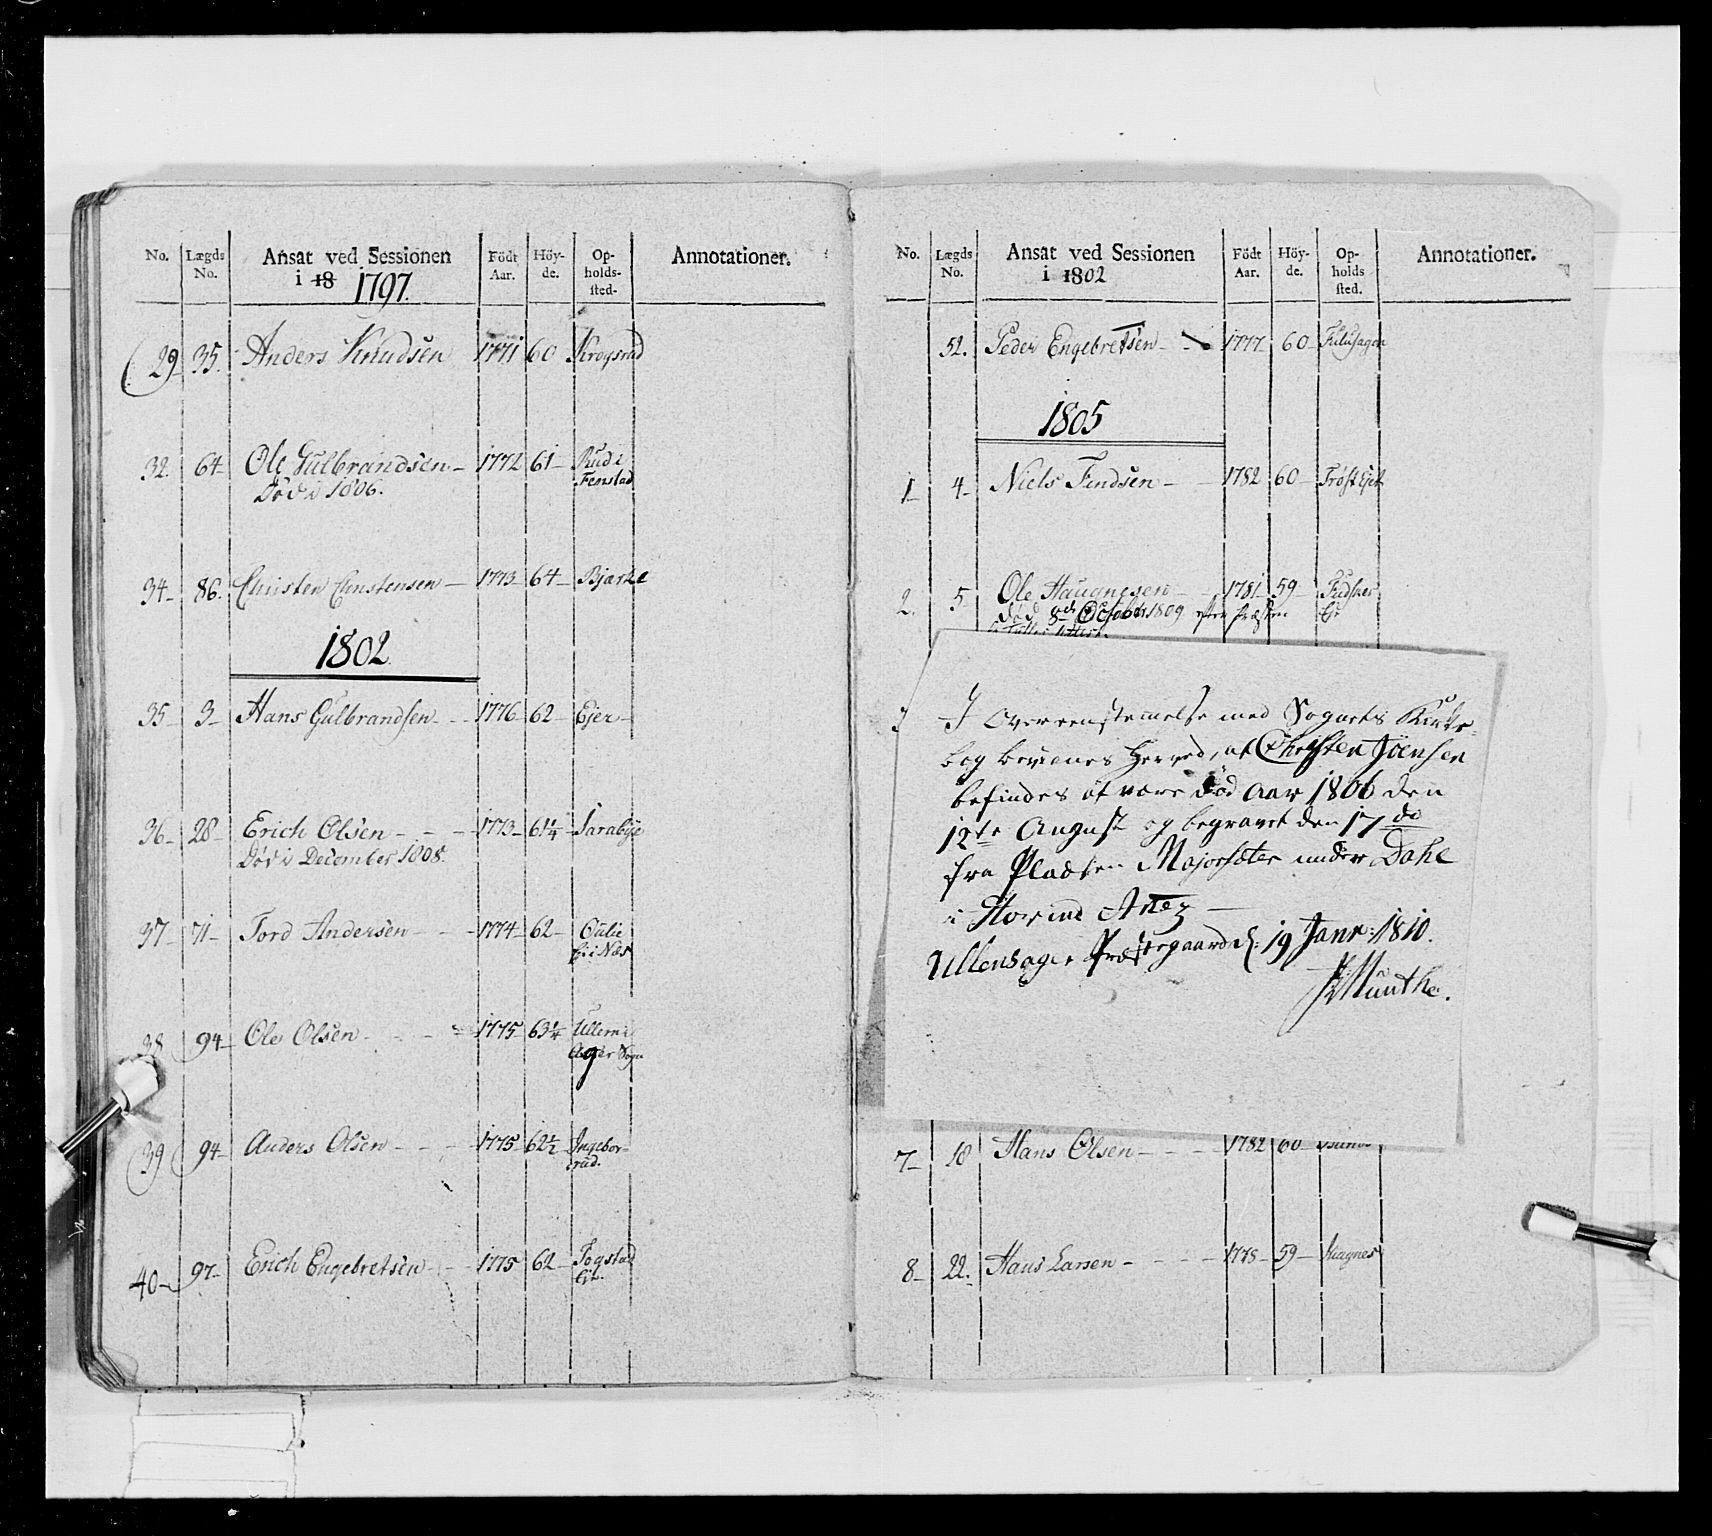 No. Lægds No. Ansat ved Sessionen i 18 1797. Födt Aar. Höy-de. Op-holds-sted- Annotationer.
29 35. Anders Knudsen 1771 60 Krogsrud
32. 64 Ole Gulbrandsen - 1772 61 - Rud i
Død i 1806. Fenstad
34 - 86. Christen Christensen - 1773 64 - Bjarke
1802.
35 - 3 - Hans Gulbrandsen - - 1776 62 - Ejer -
36 - 28 - Erich Olsen - - - 1773 - 61¼ - Sarabye
Død i December 1808.
37 - 71 - Tord Andersen - - - 1774 - 62 -
i Næs
38 94 - Ole Olsen - - - 1775 - 63¼ Ullern i
Ager Sogn
39 94 - Anders Olsen - - - 1775 - 62½ Ingebor-
rud.
40 - 97 - Erich Engebretsen - - 1775 62 - Fogstad
Eie.
No. Lægds No. Ansat ved Sessionen i 1802 Födt Aar. Höy-de. Op-holds sted. Annotationer.
52. Peder Engebretsen - 1777 60 -
1805
1 - 4 - Niels Findsen - - 1782 60 - Trøst Ejer
2. 5 Ole Haagnesen - - 1781 59 -
død 8de October 1809 efter Præsten
Attest.
I Overeenstemmelse med Sognets Kirke-
bog bevidnes herved, at Christen Joensen
befindes at være død Aar 1806 den
12te August og begravet den 17de
fra Pladsen Majorsæter under Dahl
i Hovind Anex -
Ullensager Præstegaard d. 19 Janr: 1810.
Munthe.
7 - 18 Hans Olsen - - - 1782 60
8 - 22. Hans Larsen - - - - 1778 - 59 - Haagnes